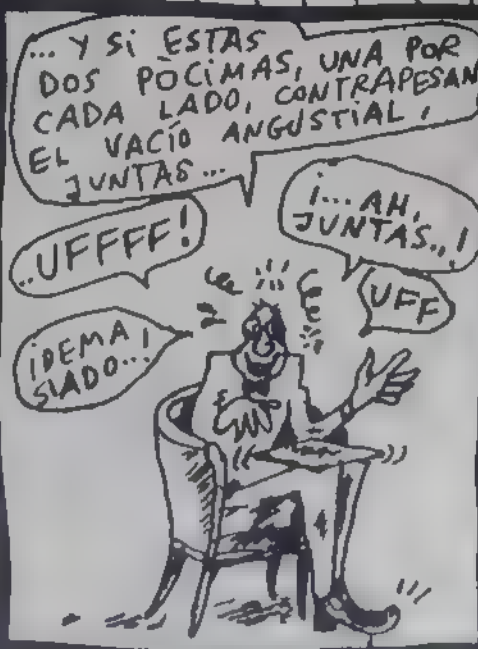 ... Y Si ESTAS
DOS PÒCiMAS, UNA POR
CADA LADO, CONTRAPESAN
EL VACÍO ANGUSTiAL,
JUNTAS...
¡... AH,
JUNTAS..!
..UFFFF!
UFF
¡DEMA
SIADO..!